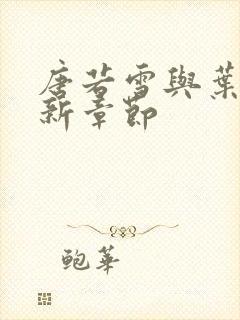 唐若雪與葉
新章節
鲍華